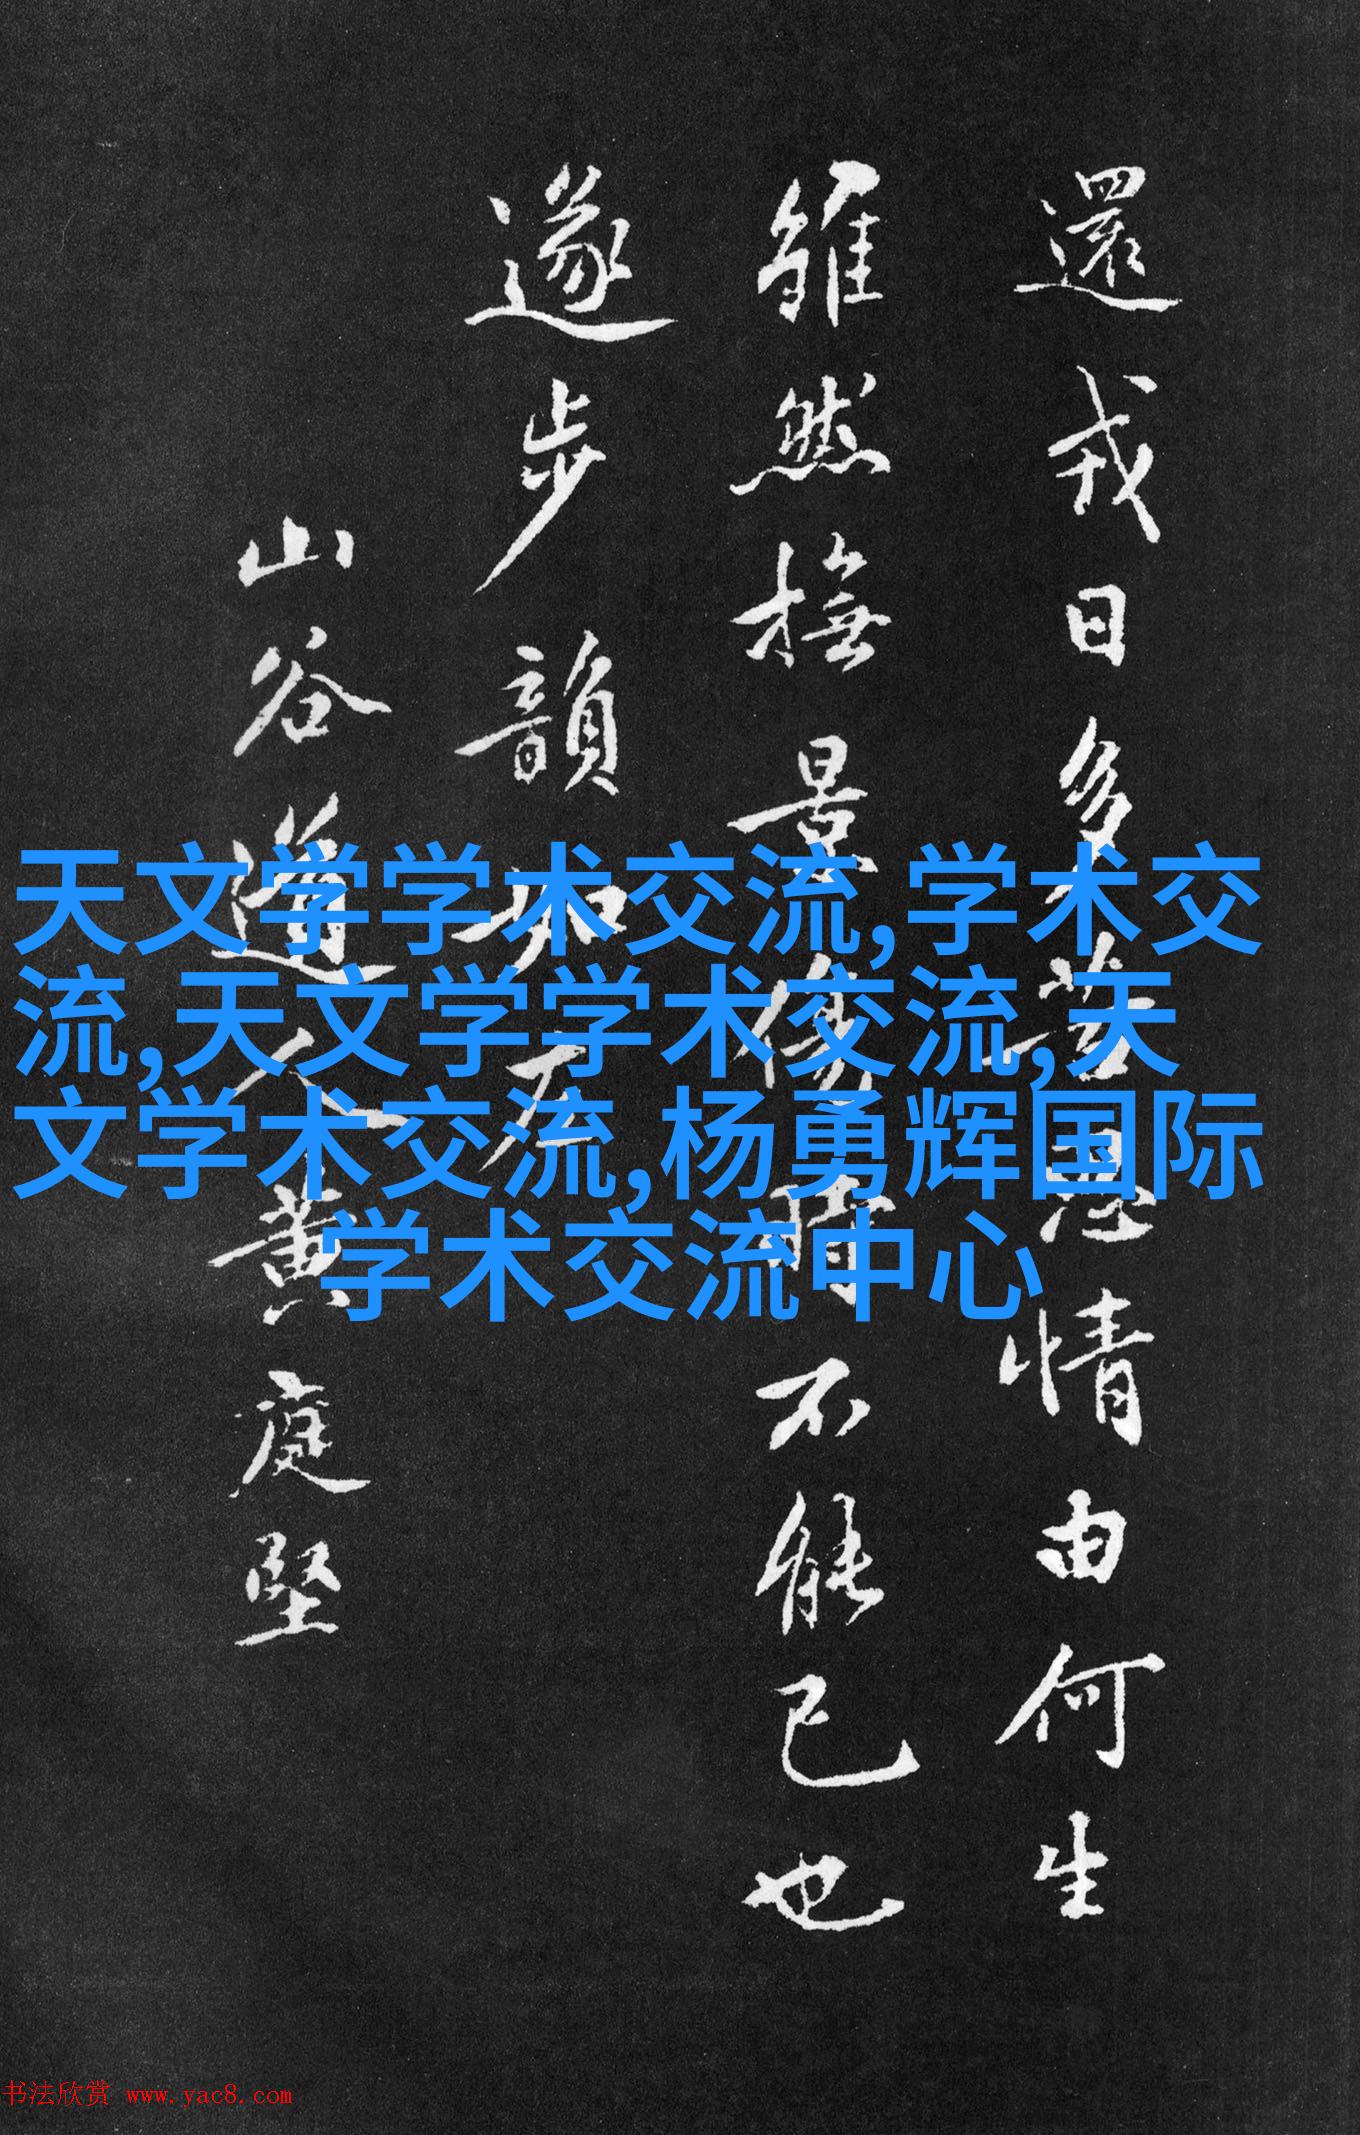 還戎日多 情由何生
雖然撫景 時不能已也
遂步韻如左
山谷道人黄庭堅
天文学学术交流,学术交
流,天文学学术交流,天
文学术交流,杨勇辉国际
学术交流中心
书法欣赏 www.yac8.com